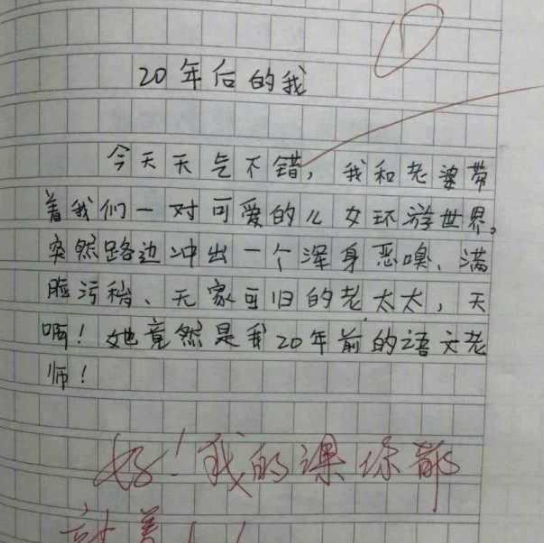 20年后的我
今天天气不错，我和老婆带
着我们一对可爱的儿女环游世界。
突然路边冲出一个浑身恶嗅、满
脸污秽、无家可归的老太太，天
啊！她竟然是我20年前的语文老
师！
好！我的课你都